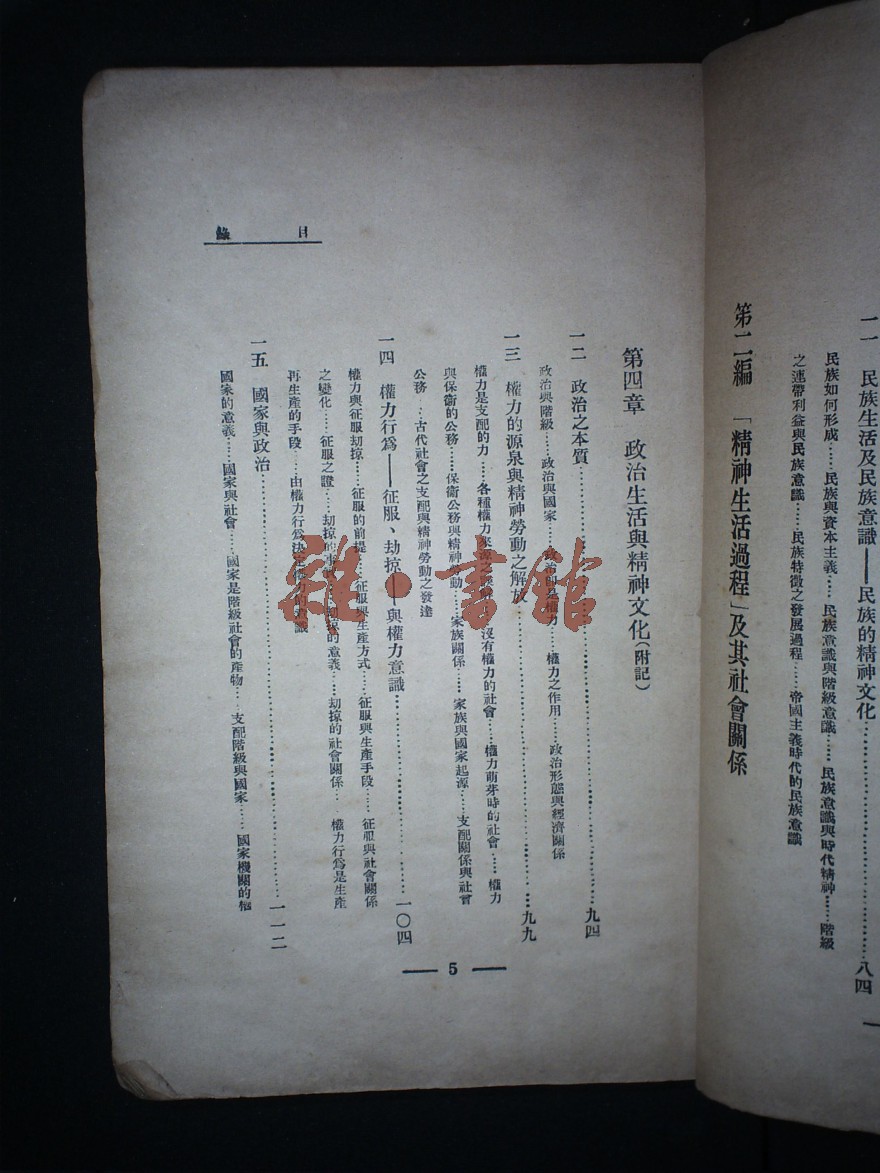 一一　民族生活及民族意識——民族的精神文化……八四
民族如何形成……民族與資本主義……民族意識與階級意識……民族意識與時代精神……階級
之連帶利益與民族意識……民族特徵之發展過程……帝國主義時代的民族意識
第二編　「精神生活過程」及其社會關係
目錄
第四章　政治生活與精神文化（附記）
一二　政治之本質……九四
政治與階級……政治與國家……權力……權力之作用……政治形態與經濟關係
一三　權力的源泉與精神勞動之解放……九九
權力是支配的力……各種權力來源之……沒有權力的社會……權力萌芽時的社會……權力
與保衛的公務……保衛公務與精神勞動……家族關係……家族與國家起源……支配關係與社會
公務……古代社會之支配與精神勞動之發達
一四　權力行爲——征服、劫掠——與權力意識……一〇四
權力與征服劫掠……征服的前提……征服與生產方式……征服與生產手段……征服與社會關係
之變化……征服之證……劫掠的……劫掠的意義……劫掠的社會關係……權力行爲是生產
再生產的手段……由權力行爲決定權力的意識
一五　國家與政治……一一二
國家的意義……國家與社會……國家是階級社會的產物……支配階級與國家……國家機關的
5
雜·書館